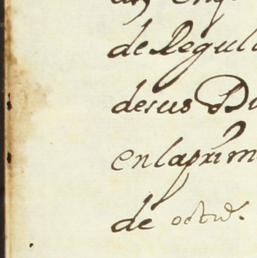 de Regul
desus Di
en la prim
de octue.